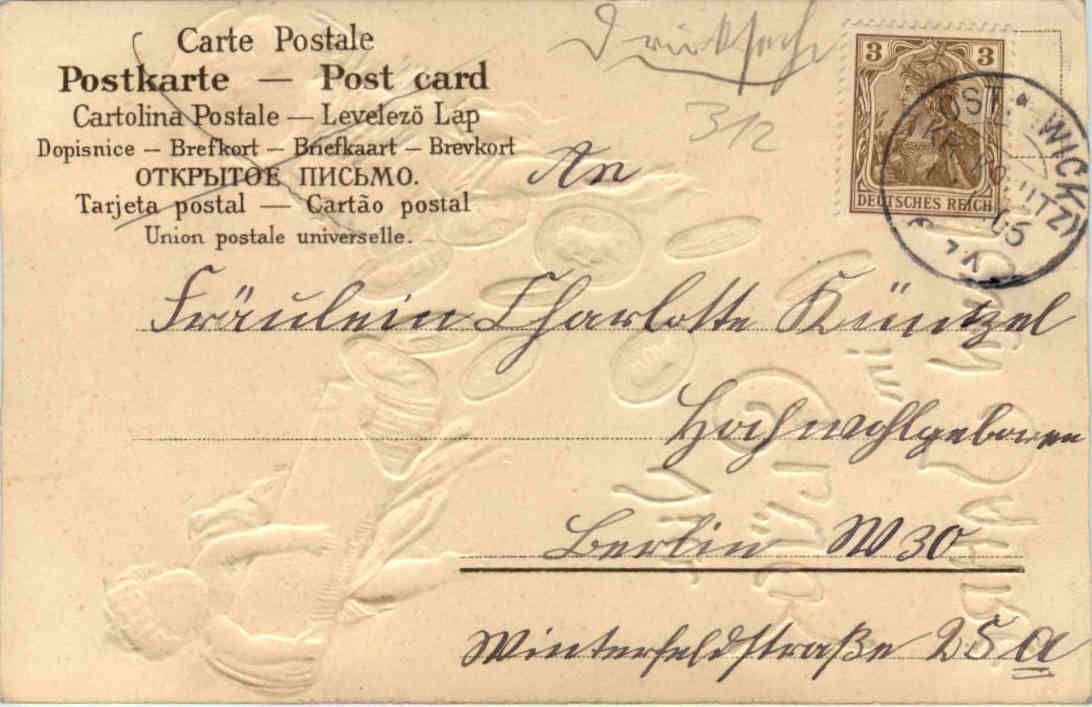 Carte Postale
Postkarte — Post card
Cartolina Postale — Levelező Lap
Dopisnice — Brefkort — Briefkaart — Brevkort
ОТКРЫТОЕ ПИСЬМО.
Tarjeta postal — Cartão postal
Union postale universelle.
Drucksache
312
3 3
DEUTSCHES REICH
WICKWITZ)
05
An
Fräulein Charlotte Küntzel
Hochwohlgeboren
Berlin W 30
Winterfeldstraße 25 a